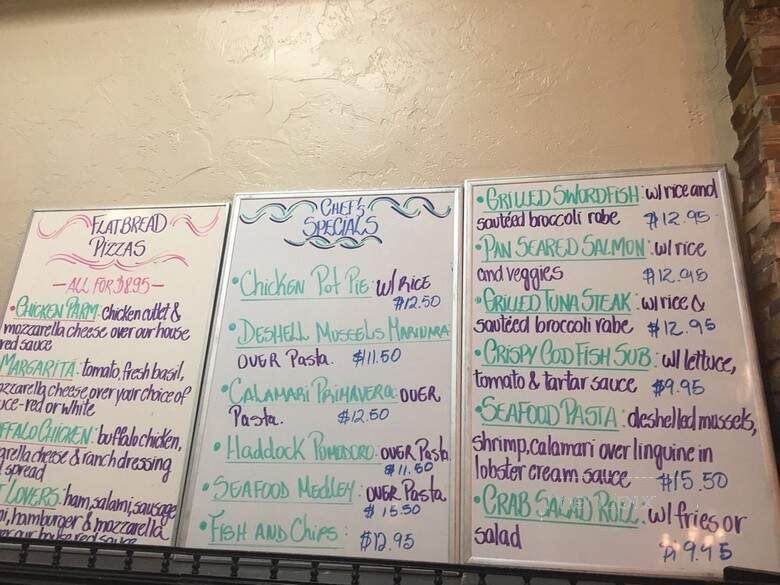 FLATBREAD
PIZZAS
-ALL FOR $8.95-
•CHICKEN PARM: chicken cutlet &
mozzarella cheese over our house
red sauce
MARGARITA: tomato, fresh basil,
cheese over your choice of
red or white
CHICKEN: buffalo chicken,
cheese & ranch dressing
spread
LOVERS: ham, salami, sausage
hamburger & mozzarella
our house red sauce
CHEF'S
SPECIALS
•CHICKEN POT PIE w/ RICE
$12.50
•DESHELL MUSSELS MARINARA
OVER Pasta. $11.50
•CALAMARI PRIMAVERA: OVER
Pasta. $12.50
•HADDOCK POMODORO: OVER Pasta
$11.50
•SEAFOOD MEDLEY: OVER Pasta
$15.50
•FISH AND CHIPS: $12.95
•GRILLED SWORDFISH: w/ rice and
sautéed broccoli rabe $12.95
•PAN SEARED SALMON: w/ rice
and veggies $12.95
•GRILLED TUNA STEAK: w/ rice &
sautéed broccoli rabe $12.95
•CRISPY COD FISH SUB: w/ lettuce,
tomato & tartar sauce $9.95
•SEAFOOD PASTA: deshelled mussels,
shrimp, calamari over linguine in
lobster cream sauce $15.50
•CRAB SALAD ROLL: w/ fries or
salad $9.95